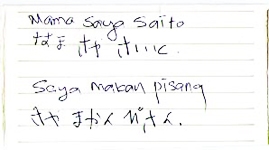 Mama Saya Saito
なま さや さいく
Saya makan pisang
さや まかん ぴさん.